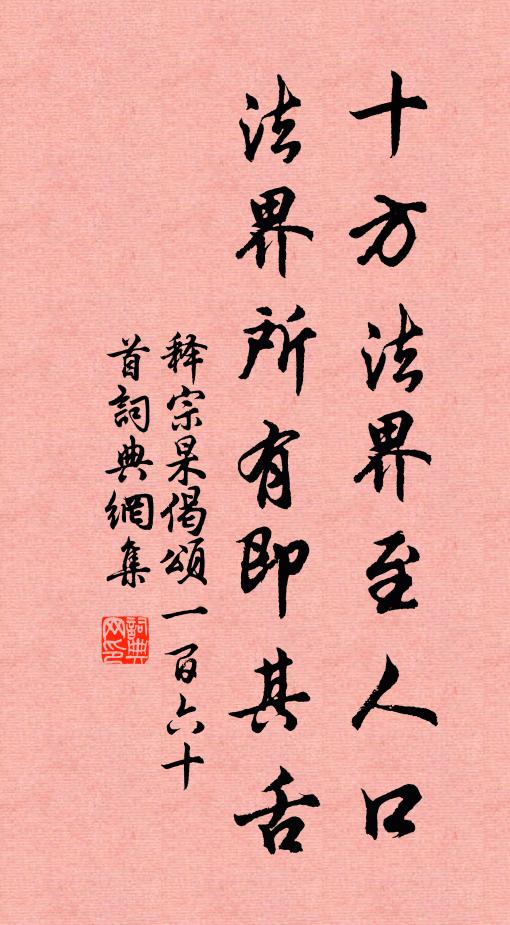 十方法界至人口
法界所有即其舌
释宗杲偈頌一百六十
首詞典網集
詞典
网印